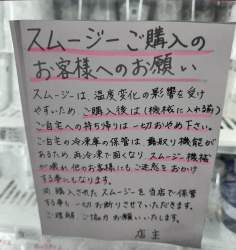 スムージーご購入の
お客様へのお願い
スムージーは、温度変化の影響を受け
やすいため ご購入後は(機械に入れる前)
ご自宅への持ち帰りは一切おやめ下さい。
ご自宅の冷凍庫の保管は 霜取り機能が
あるため 再冷凍で固くなり スムージー機械
が壊れ 他のお客様にもご迷惑をおかけ
する事にもなります。
尚 購入されたスムージーを当店で保管
する事も 一切お断りさせていただきます。
ご理解、ご協力お願いいたします。
店主